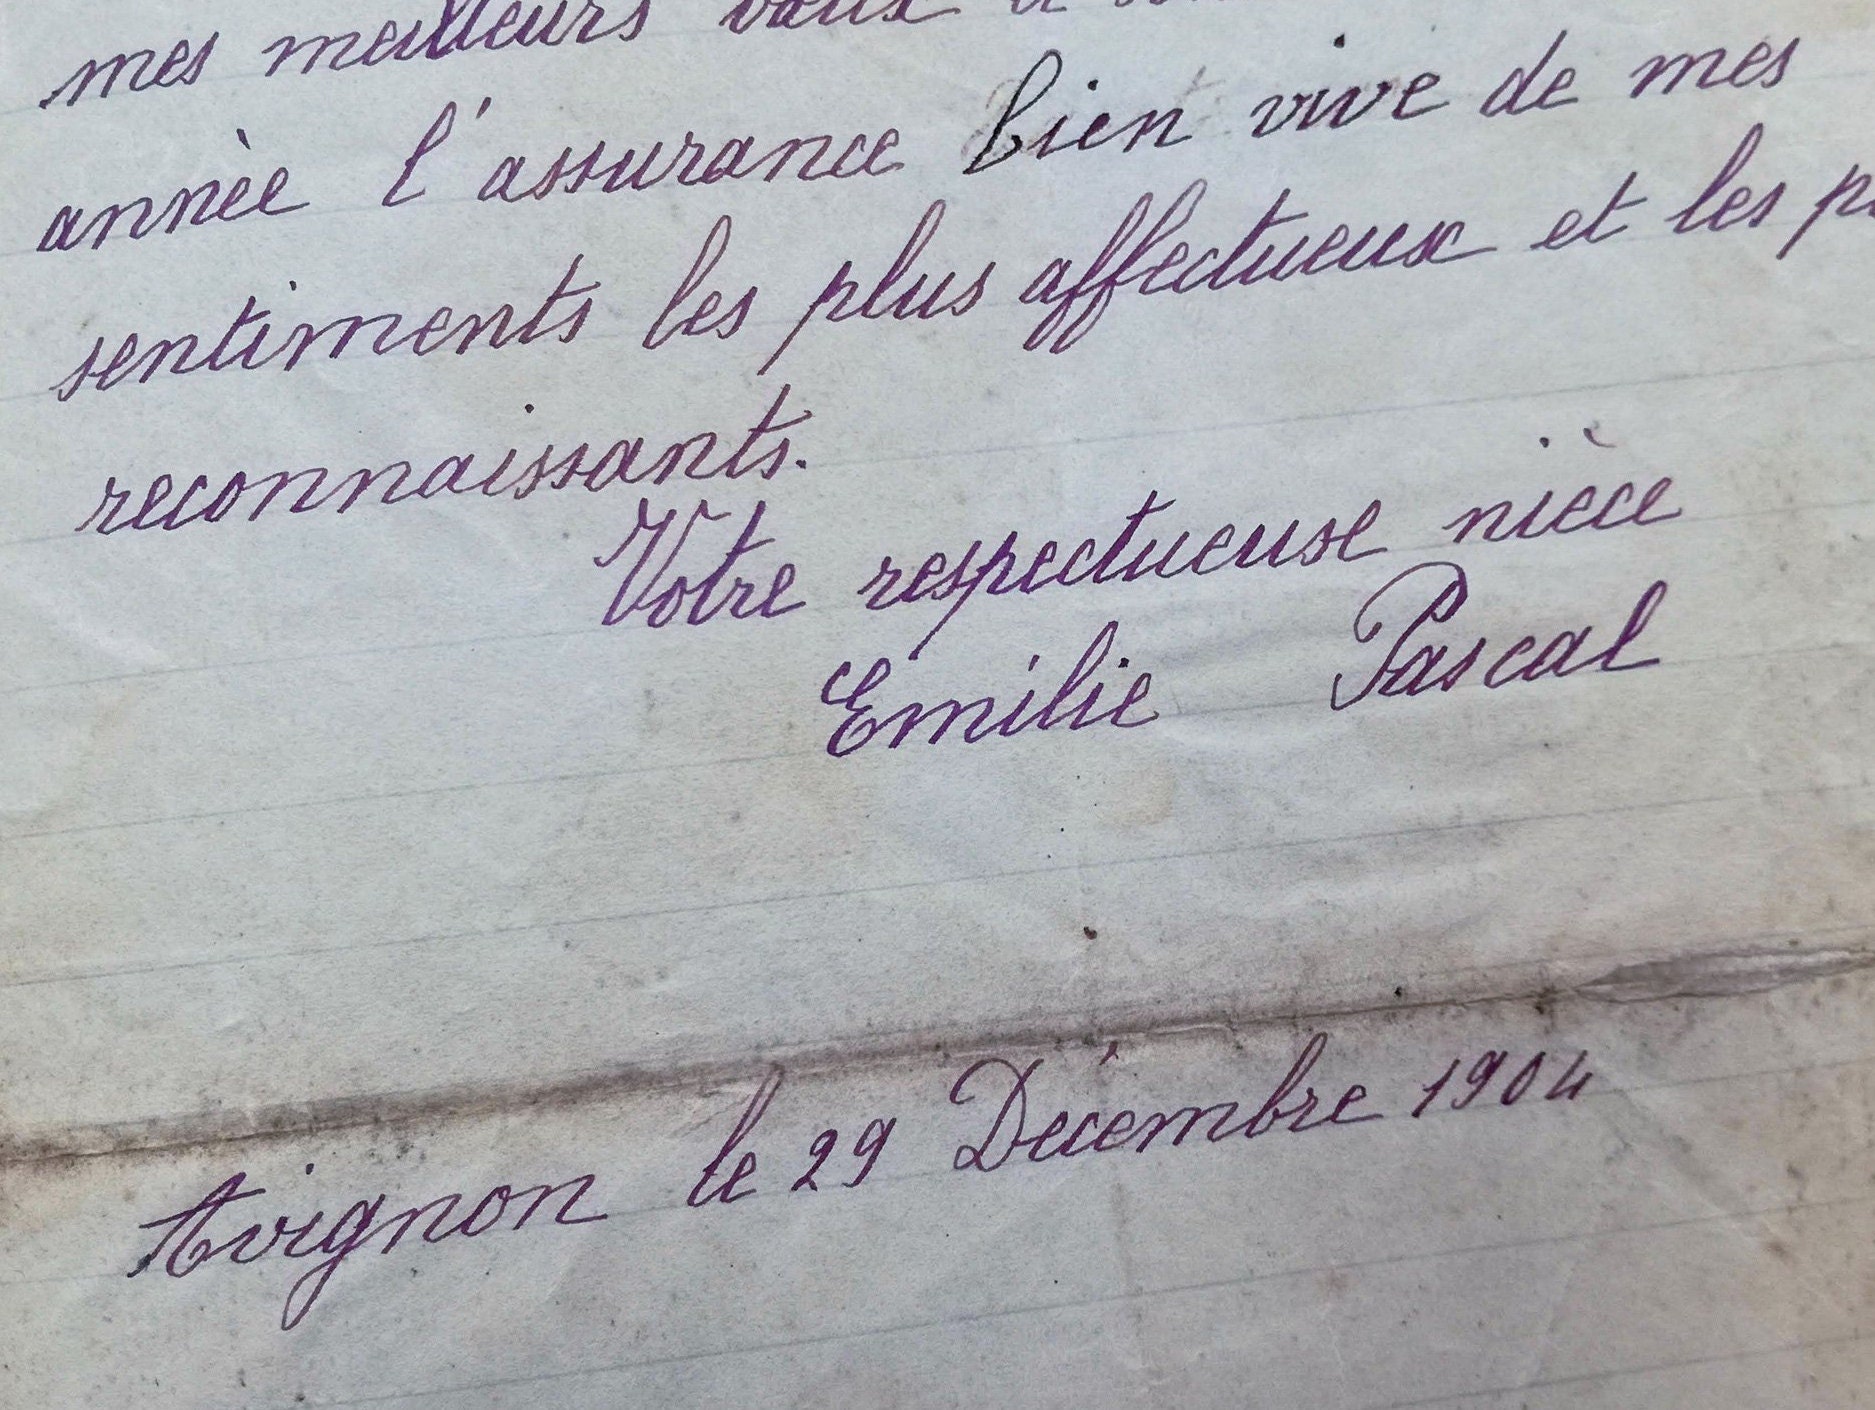 mes meilleurs vœux
annèe l'assurance bien vive de mes
sentiments les plus affectueux et les
reconnaissants.
Votre respectueuse nièce
Emilie Pascal
Avignon le 29 Décembre 1904